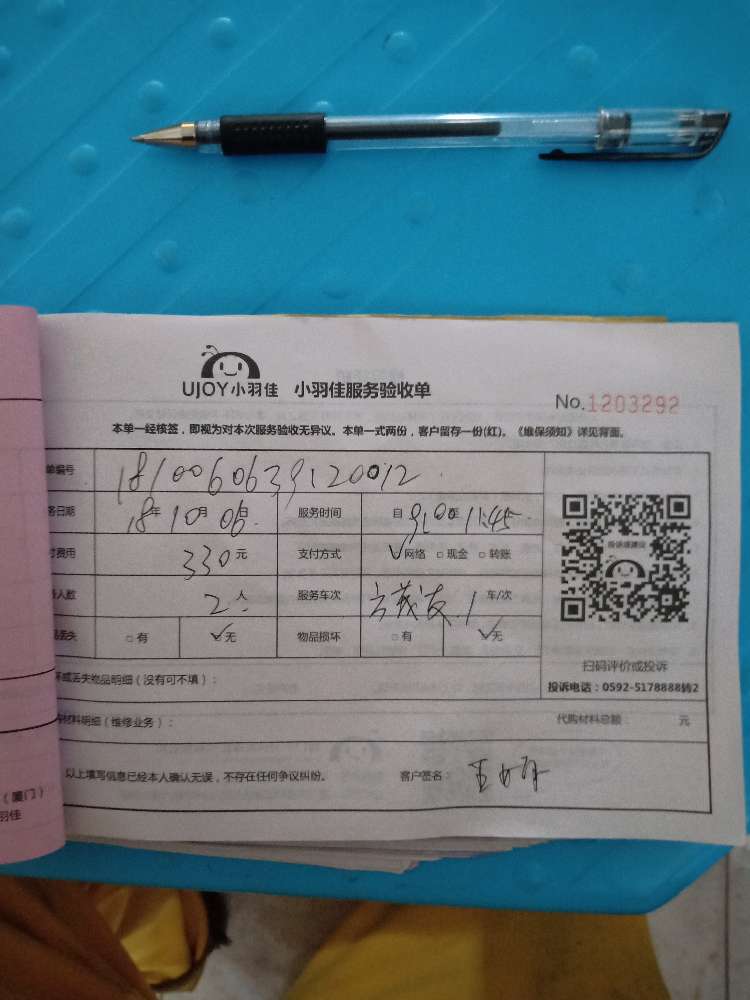 UJOY小羽佳 小羽佳服务验收单
No.1203292
本单一经核签，即视为对本次服务验收无异议。本单一式两份，客户留存一份(红)。《维保须知》详见背面。
单编号 1810060639120012
务日期 18年10月06日 服务时间 自9:00至11:45
付费用 330元 支付方式 网络 现金 转账
人数 2人 服务车次 1 车/次
丢失 有 无 物品损坏 有 无
投诉或建议
扫码评价或投诉
投诉电话：0592-5178888转2
坏或丢失物品明细（没有可不填）：
购材料明细（维修业务）： 代购材料总额 元
以上填写信息已经本人确认无误，不存在任何争议纠纷。 客户签名：
（厦门）
羽佳